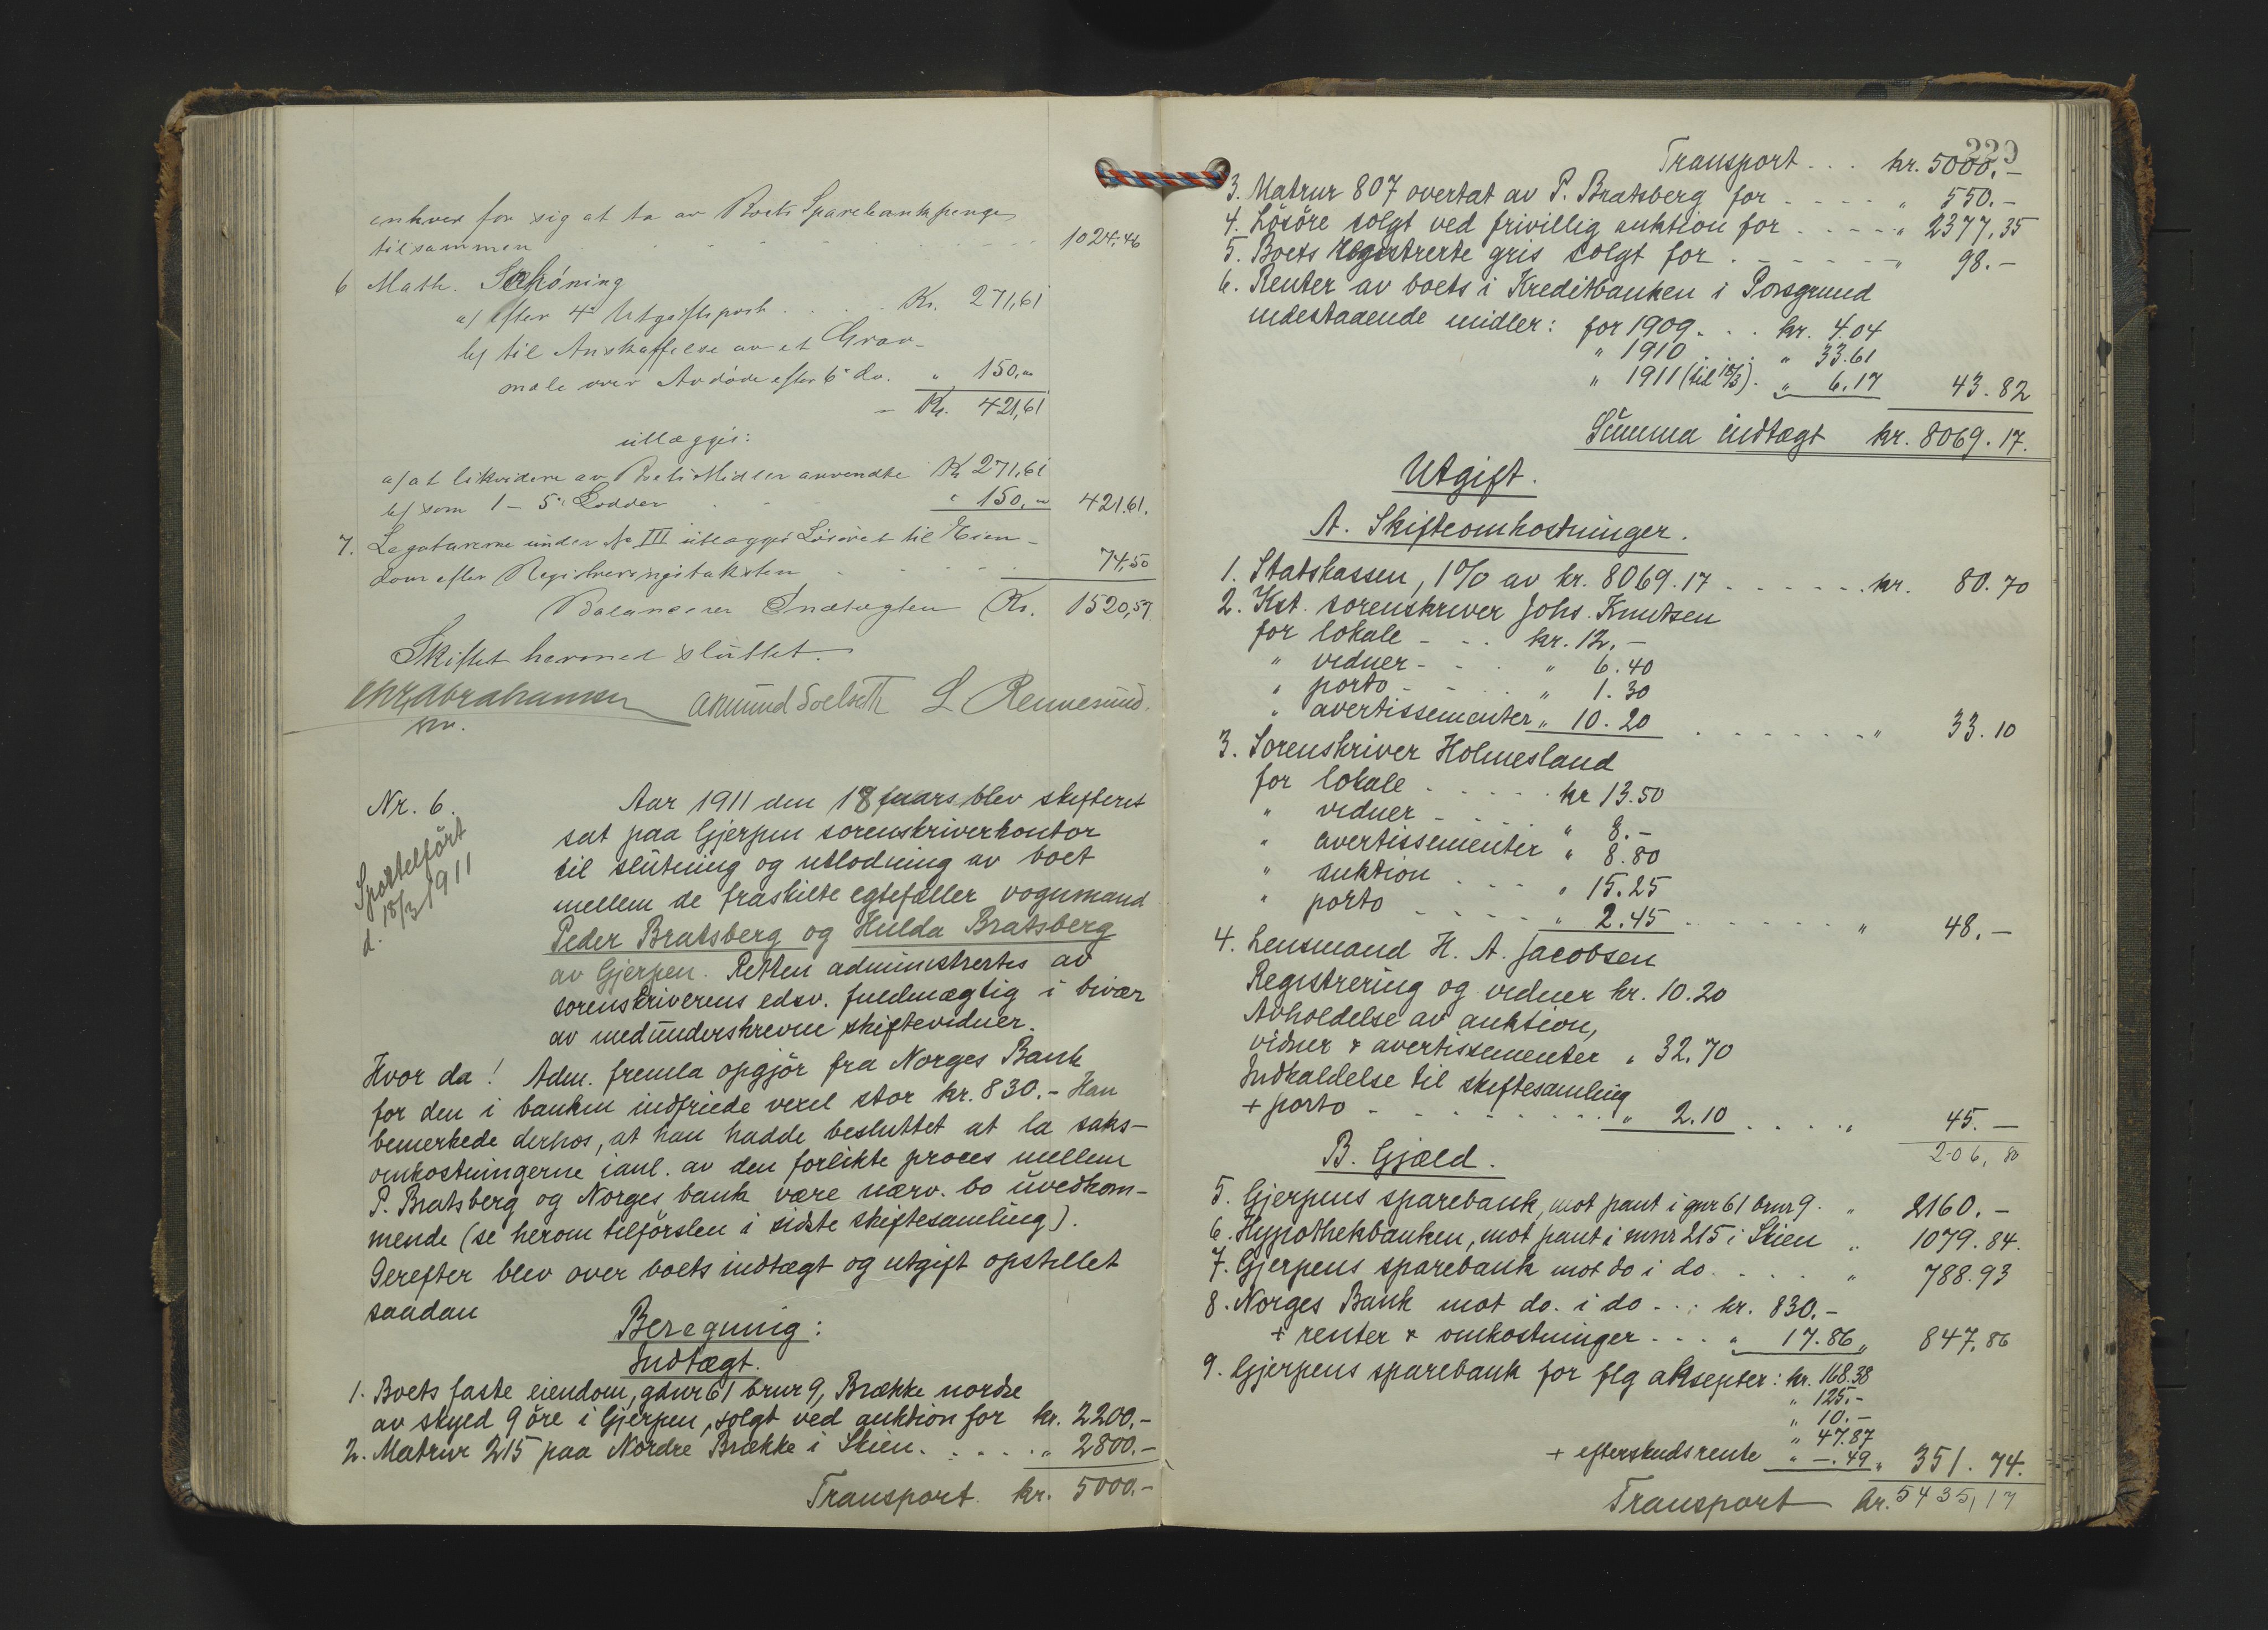 enhver for sig at ta av Boets Sparebankpenge
tilsammen 1024,46
6 Math. Schøning
a/ efter 4de Utgiftspost . . . Kr. 271,61
b/ til Anskaffelse av et Grav-
mæle over Avdøde efter 6te do. " 150,00
Kr. 421,61
utlægges:
a/ at likvidere av Boets Midler anvendte Kr 271,61
b/ som 1 - 5te Lodder " 150,00 421.61.
7. Legatarerne under No III utlægges Løsøret til Eien-
dom efter Registreringstaksten 74,50
Balancerer Indtægten Kr. 1520,57
Skiftet hermed sluttet.
Chr. Abrahamsen Asmund Soelseth L. Rennesund.
Nr. 6.
Sportelført
d. 18/3 1911
Aar 1911 den 18 mars blev skifteret
sat paa Gjerpen sorenskriverkontor
til slutning og utlodning av boet
mellem de fraskilte egtefæller vognmand
Peder Bratsberg og Hulda Bratsberg
av Gjerpen. Retten administrertes av
sorenskriverens edsv. fuldmægtig i bivær
av medunderskrevne skiftevidner.
Hvor da! Adm. fremla opgjör fra Norges Bank
for den i banken indfriede vexel stor kr. 830.- Han
bemerkede derhos, at han hadde besluttet at la saks-
omkostningerne i anl. av den forlikte proces mellem
P. Bratsberg og Norges bank være nærv. bo uvedkom-
mende (se herom tilförslen i sidste skiftesamling).
Derefter blev over boets indtægt og utgift opstillet
saadan
Beregning:
Indtægt.
1. Boets faste eiendom, gdnr 61 brnr 9, Brække nordre
av skyld 9 öre i Gjerpen, solgt ved auktion for kr. 2200.-
2. Matrnr 215 paa Nordre Brække i Skien. . . . . " 2800.-
Transport kr. 5000.-
229
Transport . . . kr. 5000.-
3. Matrnr 807 overtat av P. Bratsberg for - - - - " 550.-
4. Lösöre solgt ved frivillig auktion for - - - - " 2377,35
5. Boets registrerte gris solgt for . - - - - - " 98.-
6. Renter av boets i Kreditbanken i Porsgrund
indestaaende midler: for 1909 . . . kr. 4.04
" 1910 . . . " 33.61
" 1911 (til 18/3). " 6.17 43.82
Summa indtægt kr. 8069.17.
Utgift.
A. Skifteomkostninger.
1. Statskassen, 1% av kr. 8069.17 - - - - - kr. 80.70
2. Kst. sorenskriver Johs. Knutsen
for lokale - - . kr. 12.-
" vidner - - . " 6.40
" porto - - . . " 1.30
" avertissementer " 10.20 - - - - - " 33.10
3. Sorenskriver Holmesland
for lokale . - - - . kr 13.50
" vidner - - - . " 8.-
" avertissementer " 8.80
" auktion . - - - " 15.25
" porto - - - - " 2.45 - - - - - " 48.-
4. Lensmand H. A. Jacobsen
Registrering og vidner kr. 10.20
Avholdelse av auktion,
vidner & avertissementer " 32.70
Indkaldelse til skiftesamling
+ porto - - - - - - " 2.10 . . . . " 45.-
206,80
B. Gjæld.
5. Gjerpens sparebank, mot pant i gnr 61 brnr 9. " 2160.-
6. Hypothekbanken, mot pant i mnr 215 i Skien " 1079.84.
7. Gjerpens sparebank mot do i do. - . . " 788.93
8. Norges Bank mot do. i do - . : kr. 830.-
+ renter & omkostninger - - . " 17.86 " 847,86
9. Gjerpens sparebank for flg aksepter: kr. 168.38
" 125.-
" 10.-
" 47.87
+ efterskudsrente " -.49 " 351.74.
Transport kr. 5435,17